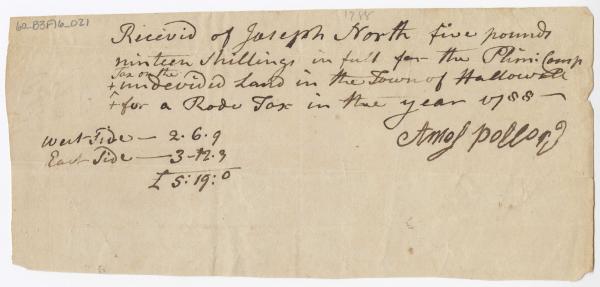 62-B3F16_021
1788
Recivid of Joseph North five pounds
ninteen shillings in full for the Plim: Comp
Tax on the
+ undevided Land in the Town of Hallowell
+ for a Rode Tax in the year 1788 —
West Side — 2.6.9
East Side — 3-12.3
£ 5:19:0
Amos Pollard